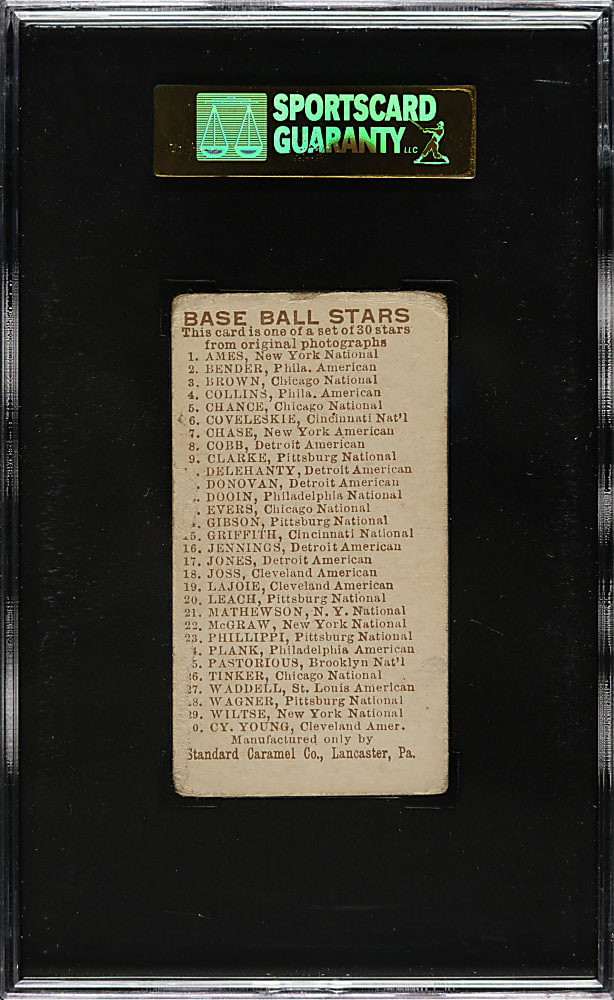 SPORTSCARD
GUARANTY LLC
BASE BALL STARS
This card is one of a set of 30 stars
from original photographs
1. AMES, New York National
2. BENDER, Phila. American
3. BROWN, Chicago National
4. COLLINS, Phila. American
5. CHANCE, Chicago National
6. COVELESKIE, Cincinnati Nat'l
7. CHASE, New York American
8. COBB, Detroit American
9. CLARKE, Pittsburg National
. DELEHANTY, Detroit American
. DONOVAN, Detroit American
. DOOIN, Philadelphia National
. EVERS, Chicago National
. GIBSON, Pittsburg National
5. GRIFFITH, Cincinnati National
16. JENNINGS, Detroit American
17. JONES, Detroit American
18. JOSS, Cleveland American
19. LAJOIE, Cleveland American
20. LEACH, Pittsburg National
21. MATHEWSON, N. Y. National
22. McGRAW, New York National
23. PHILLIPPI, Pittsburg National
4. PLANK, Philadelphia American
5. PASTORIOUS, Brooklyn Nat'l
26. TINKER, Chicago National
27. WADDELL, St. Louis American
8. WAGNER, Pittsburg National
29. WILTSE, New York National
0. CY. YOUNG, Cleveland Amer.
Manufactured only by
Standard Caramel Co., Lancaster, Pa.